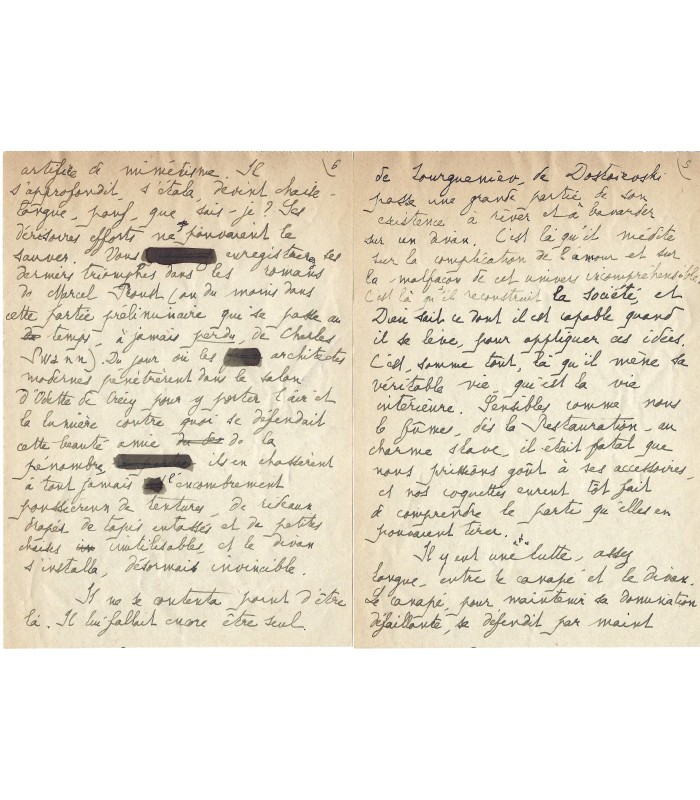 6
artifice de mimétisme. Il
s'approfondit, s'étala, devint chaise-
longue, pouf, que sais-je ? Ses
dérisoires efforts ne pouvaient le
sauver. Vous enregistrerez ses
derniers triomphes dans les romans
de Marcel Proust (ou du moins dans
cette partie préliminaire qui se passe au
temps, à jamais perdu, de Charles
Swann). Du jour où les architectes
modernes pénétrèrent dans le salon
d'Odette de Crécy pour y porter l'air et
la lumière contre quoi se défendait
cette beauté amie de la
pénombre, ils en chassèrent
à tout jamais l'encombrement
poussiéreux de tentures, de rideaux
drapés, de tapis entassés et de petites
chaises inutilisables, et le divan
s'installa, désormais invincible.
Il ne se contenta point d'être
là. Il lui fallait encore être seul.
5
de Tourgueniev, de Dostoïevski
passe une grande partie de son
existence à rêver et à bavarder
sur un divan. C'est là qu'il médite
sur la complication de l'amour et sur
la malfaçon de cet univers incompréhensible.
C'est là qu'il reconstruit la société, et
Dieu sait ce dont il est capable quand
il se lève, pour appliquer ces idées.
C'est, somme tout, là qu'il mène sa
véritable vie, qui est la vie
intérieure. Sensibles comme nous
le fûmes, dès la Restauration, au
charme slave, il était fatal que
nous prissions goût à ses accessoires,
et nos coquettes eurent tôt fait
de comprendre le parti qu'elles en
pouvaient tirer.
Il y eut une lutte, assez
longue, entre le canapé et le divan.
Le canapé, pour maintenir sa domination
défaillante, se défendit par maint